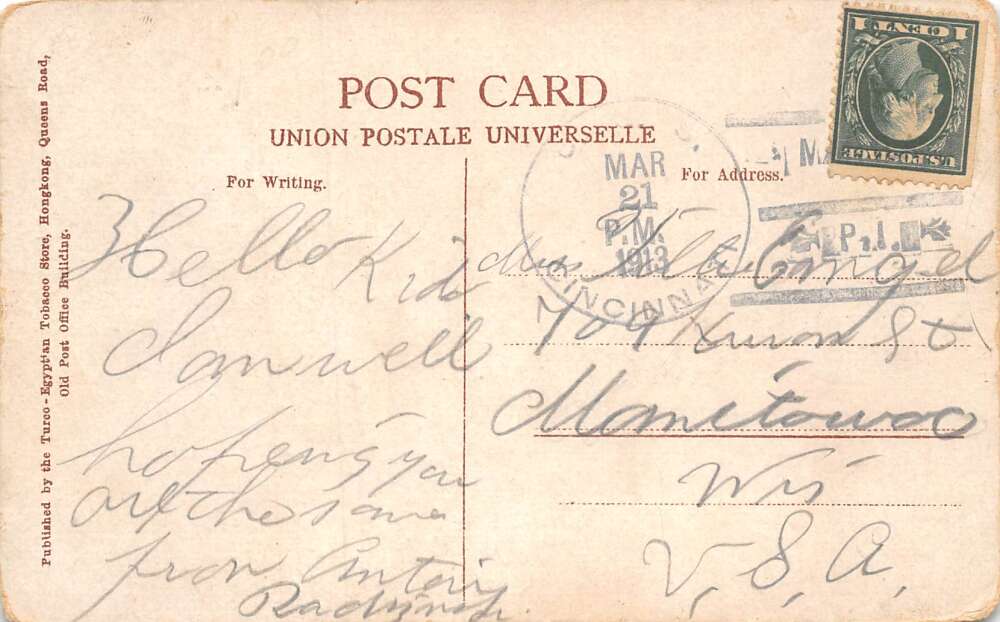 POST CARD
UNION POSTALE UNIVERSELLE
For Writing.
For Address.
Published by the Turco-Egyptian Tobacco Store, Hongkong, Queens Road,
Old Post Office Building.
1 ONE 1
U.S. POSTAGE
U.S.S.
MAR
21
P.M.
1913
CINCINNA
P.I.
Hello Kido
I am well
hopeing you
are the same
from
Miss Engel
704 St
Manitowoc
Wis
U.S.A.